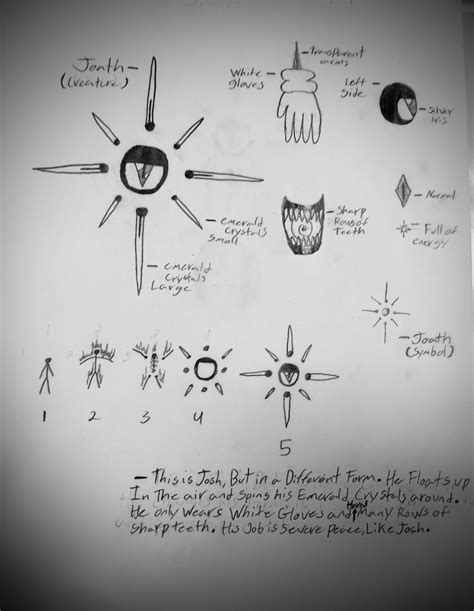 Joath –
(Creature)
Transparent
arms
White
gloves
Left
side
Silver
Iris
Normal
Full of
energy
Sharp
Rows of
Teeth
emerald
Crystals
Small
emerald
Crystals
Large
Joath
(Symbol)
1 2 3 4 5
– This is Josh, But in a Different Form. He Floats up
In The air and spins his Emerald Crystals around.
He only Wears White Gloves and Many Rows of
sharp teeth. His Job is Severe peace, Like Josh.